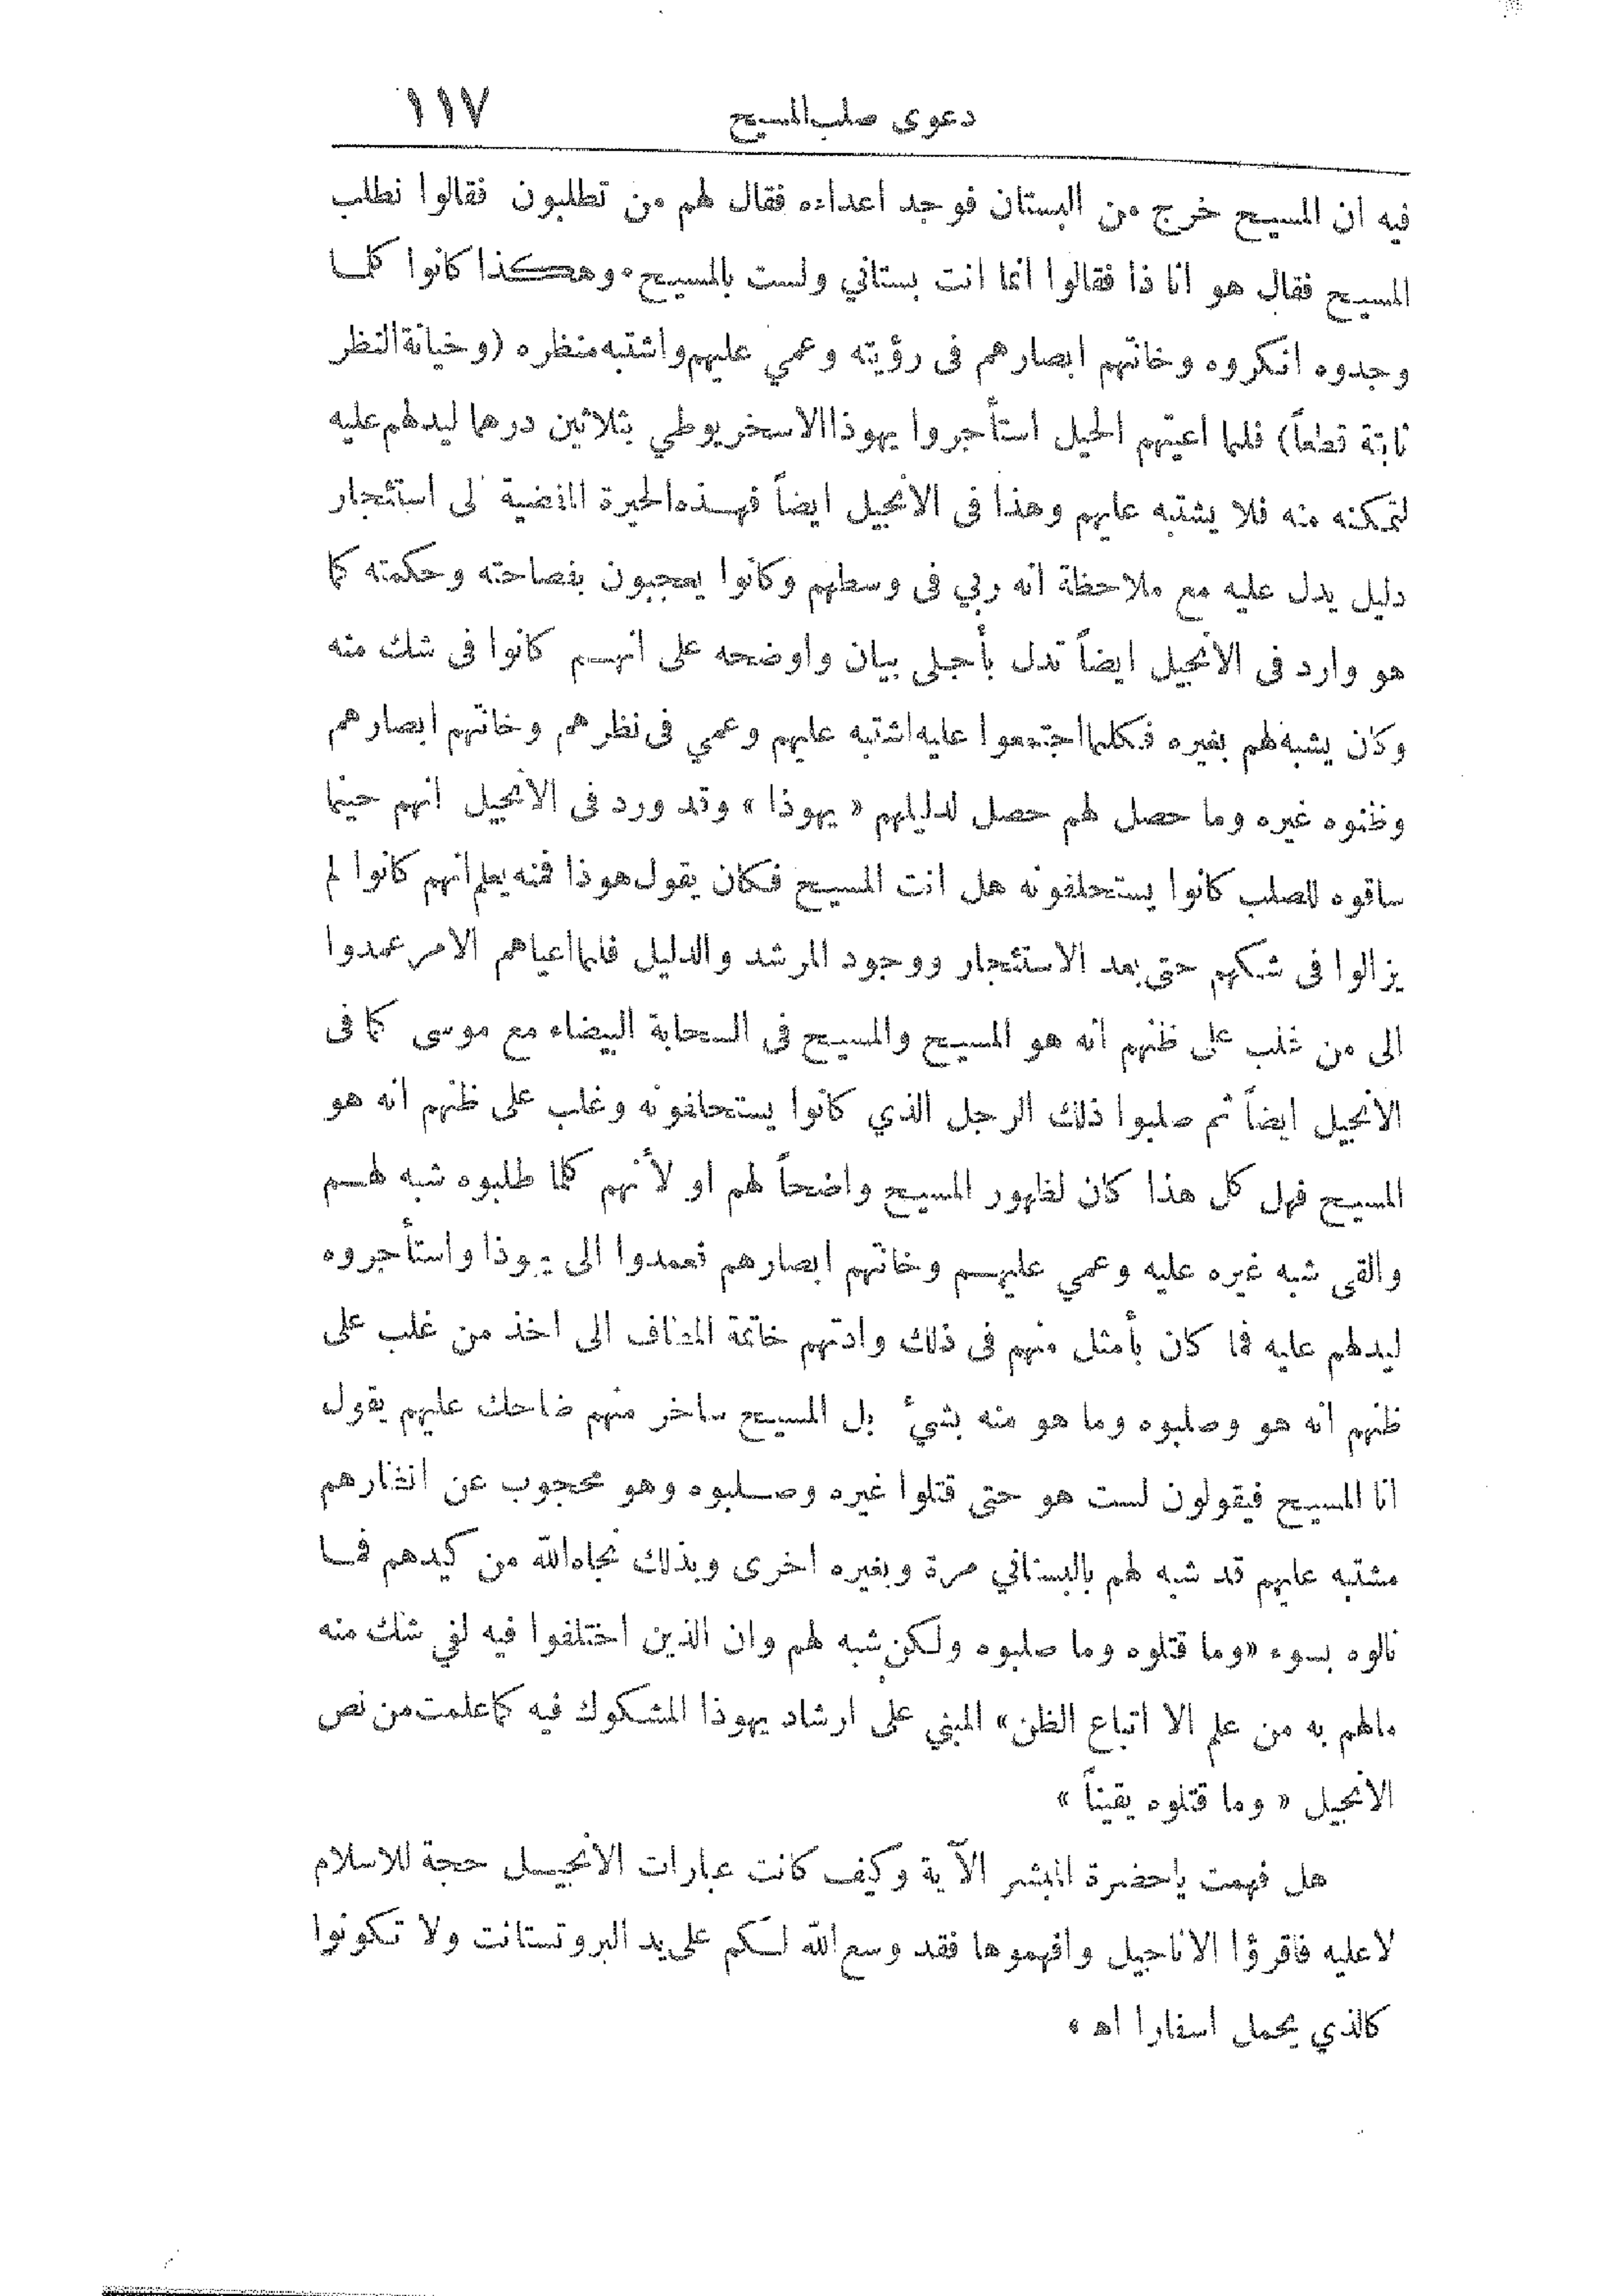 دعوى صلب المسيح ١١٧
فيه ان المسيح خرج من البستان فوجد اعداءه فقال لهم من تطلبون فقالوا نطلب
المسيح فقال هو انا ذا فقالوا انما انت بستاني ولست بالمسيح ٠ وهكذا كانوا كلما
وجدوه انكروه وخانتهم ابصارهم فى رؤيته وعمي عليهم واشتبه منظره (وخيانة النظر
ثابتة قطعاً) فلما اعيتهم الحيل استأجروا يهوذا الاسخريوطي بثلاثين درهما ليدلهم عليه
لتمكنه منه فلا يشتبه عليهم وهذا فى الانجيل ايضاً فهذه الحيرة المفضية لى استئجار
دليل يدل عليه مع ملاحظة انه ربي فى وسطهم وكانوا يعجبون بفصاحته وحكمته كما
هو وارد فى الانجيل ايضاً تدل بأجلى بيان واوضحه على انهم كانوا فى شك منه
وكان يشبه لهم بغيره فكلما اجتمعوا عليه اشتبه عليهم وعمي فى نظرهم وخانتهم ابصارهم
وظنوه غيره وما حصل لهم حصل لدليلهم « يهوذا » وقد ورد فى الانجيل انهم حينما
ساقوه للصلب كانوا يستحلفونه هل انت المسيح فكان يقول هوذا فمنه يعلم انهم كانوا لم
يزالوا فى شكهم حتى بعد الاستئجار ووجود المرشد والدليل فلما اعياهم الامر عمدوا
الى من غلب على ظنهم انه هو المسيح والمسيح فى السحابة البيضاء مع موسى كما فى
الانجيل ايضاً ثم صلبوا ذلك الرجل الذي كانوا يستحلفونه وغلب على ظنهم انه هو
المسيح فهل كل هذا كان لظهور المسيح واضحاً لهم او لأنهم كلما طلبوه شبه لهم
والقى شبه غيره عليه وعمي عليهم وخانتهم ابصارهم فعمدوا الى يهوذا واستأجروه
ليدلهم عليه فما كان بأمثل منهم فى ذلك وادتهم خاتمة المطاف الى اخذ من غلب على
ظنهم انه هو وصلبوه وما هو منه بشئ بل المسيح ساخر منهم ضاحك عليهم يقول
انا المسيح فيقولون لست هو حتى قتلوا غيره وصلبوه وهو محجوب عن انظارهم
مشتبه عليهم قد شبه لهم بالبستاني مرة وبغيره اخرى وبذلك نجاه الله من كيدهم فما
نالوه بسوء «وما قتلوه وما صلبوه ولكن شبه لهم وان الذين اختلفوا فيه لفي شك منه
مالهم به من علم الا اتباع الظن» المبني على ارشاد يهوذا المشكوك فيه كما علمت من نص
الانجيل « وما قتلوه يقيناً »
هل فهمت ياحضرة المبشر الآية وكيف كانت عبارات الانجيل حجة للاسلام
لاعليه فاقرؤا الاناجيل وافهموها فقد وسع الله لكم على يد البروتستانت ولا تكونوا
كالذي يحمل اسفارا اه ٠